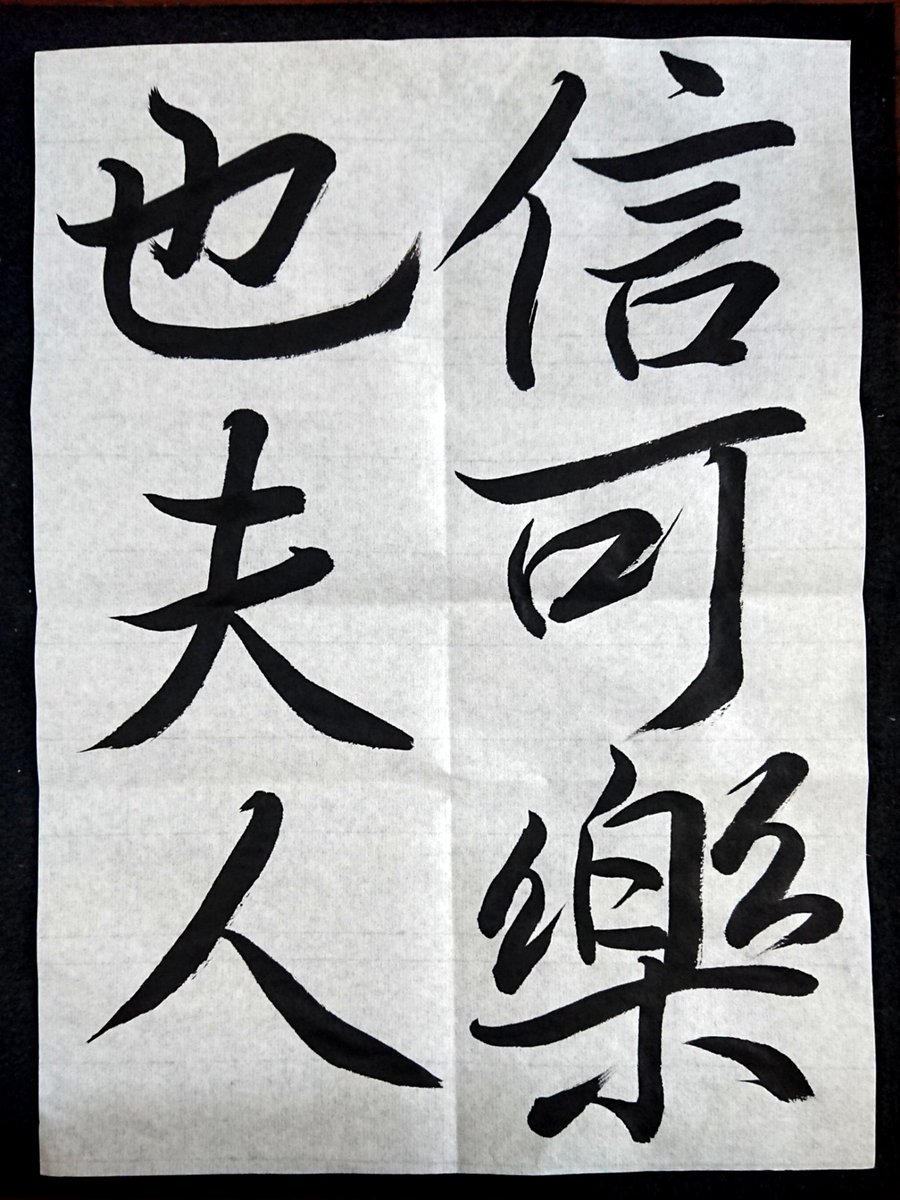 信可樂
也夫人